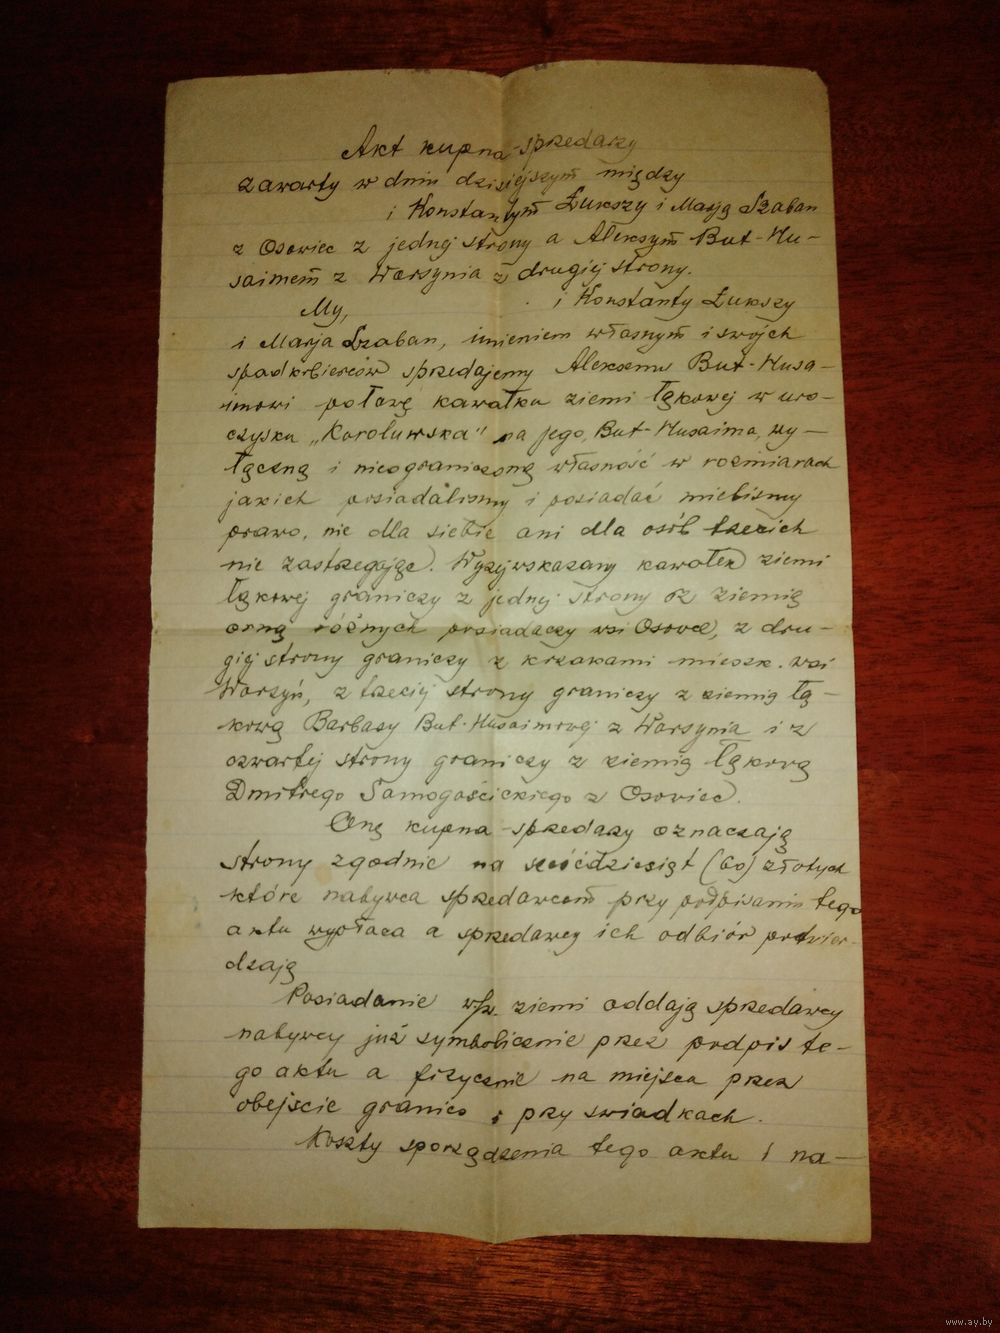 Akt kupna-sprzedaży
zawarty w dniu dzisiejszym między
i Konstantym Łukszy i Marją Szaban
z Osowiec z jednej strony a Aleksym But-Hu-
saimem z Worsynia z drugiej strony.
My, i Konstanty Łukszy
i Marja Szaban, imieniem własnym i swójch
spadkobierców sprzedajemy Aleksemu But-Husa-
imowi połowę kawałka ziemi łąkowej w uro-
czysku „Karoluwska" na jego, But-Husaima, wy-
łączną i nieograniczoną własność w rozmiarach
jakich posiadaliśmy i posiadać mieliśmy
prawo, nie dla siebie ani dla osób trzecich
nie zastrzegając. Wyżej wskazany kawałek ziemi
łąkowej graniczy z jednej strony z ziemią
orną różnych posiadaczy wsi Osowce, z dru-
giej strony graniczy z krzakami mieszk. wsi
Worszyń, z trzeciej strony graniczy z ziemią łą-
kową Barbary But-Husaimowej z Worsynia i z
czwartej strony graniczy z ziemią łąkową
Dmitrego Samogościckiego z Osowiec.
Cenę kupna-sprzedaży oznaczają
strony zgodnie na sześćdziesiąt (60) złotych
które nabywca sprzedawcom przy podpisaniu tego
aktu wypłaca a sprzedawcy ich odbiór potwier-
dzają
Posiadanie w/w. ziemi oddają sprzedawcy
nabywcy już symbolicznie przez podpis te-
go aktu a fizycznie na miejscu przez
obejście granic i przy swiadkach.
Koszty sporządzenia tego aktu i na-
www.ay.by